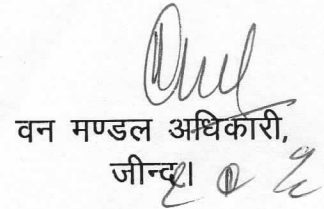 वन मण्डल अधिकारी,
जीन्द।